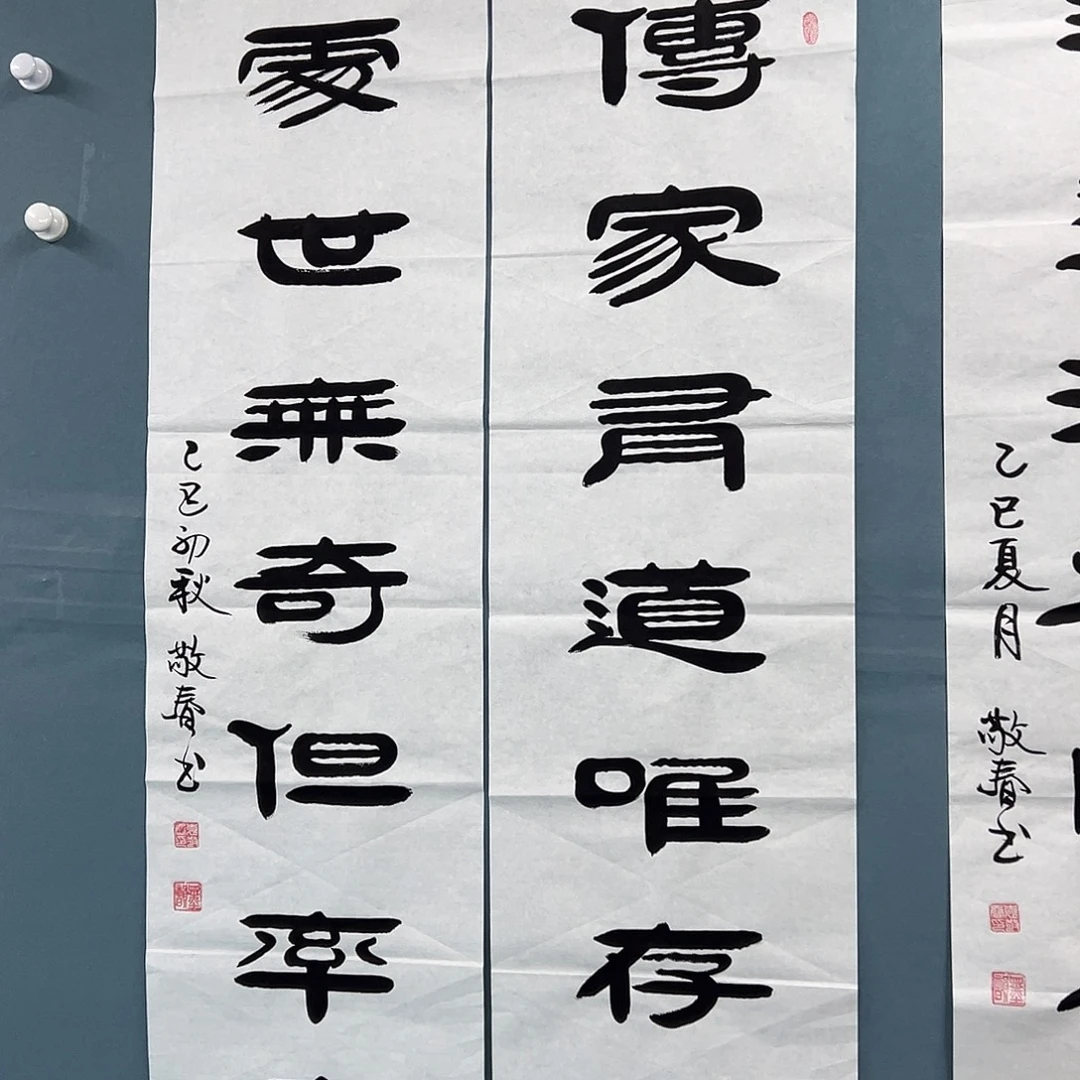 傳家有道唯存
處世無奇但率
乙巳初秋 敬春书
乙巳夏月 敬春书